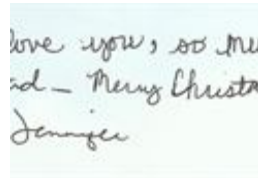 love you, so me
ad – Merry Christm
Jennifer